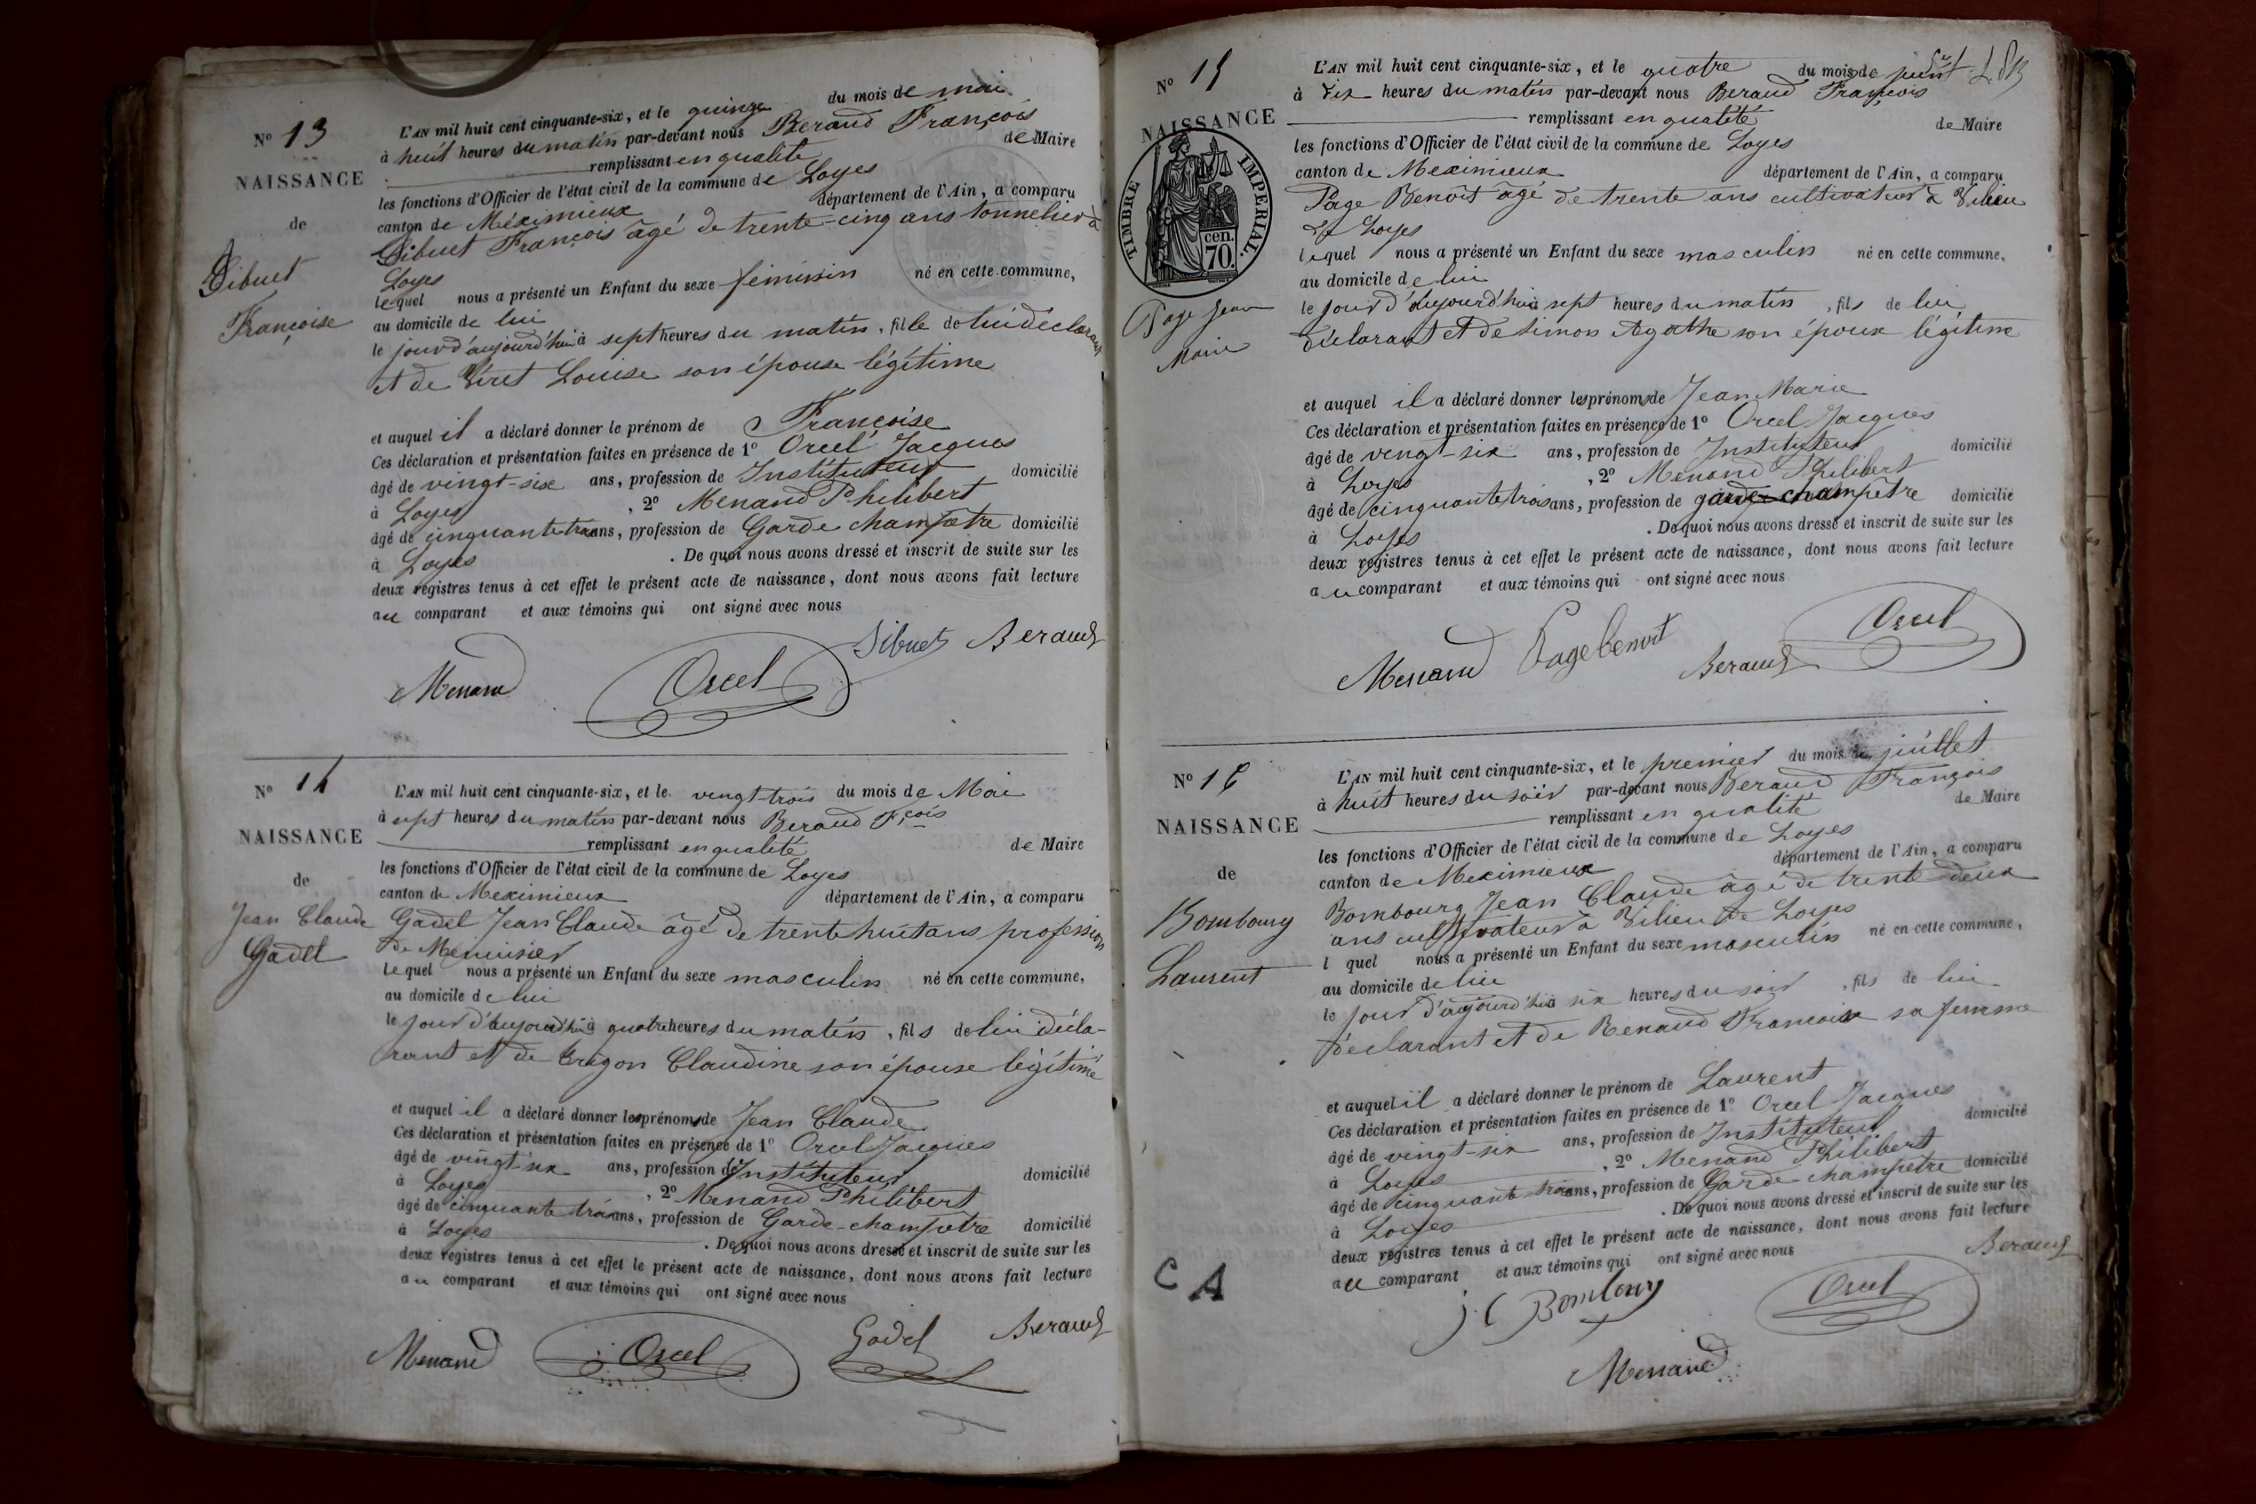 N° 13
NAISSANCE
de
Sibuet
Françoise
L'AN mil huit cent cinquante-six, et le quinze du mois de mai
à huit heures du matin par-devant nous Beraud François
remplissant en qualité de Maire
les fonctions d'Officier de l'état civil de la commune de Loyes
canton de Méximieux département de l'Ain, a comparu
Sibuet François âgé de trente-cinq ans tonnelier à
Loyes
lequel nous a présenté un Enfant du sexe féminin né en cette commune,
au domicile de lui
le jour d'aujourd'hui à sept heures du matin, fille de lui déclarant
et de Louise son épouse légitime
et auquel il a déclaré donner le prénom de Françoise
Ces déclaration et présentation faites en présence de 1° Orcel Jacques
âgé de vingt-six ans, profession de Instituteur domicilié
à Loyes, 2° Menand Philibert
âgé de cinquante trois ans, profession de Garde champêtre domicilié
à Loyes. De quoi nous avons dressé et inscrit de suite sur les
deux registres tenus à cet effet le présent acte de naissance, dont nous avons fait lecture
au comparant et aux témoins qui ont signé avec nous
Sibuet Beraud
Menand Orcel
N° 14
NAISSANCE
de
Jean Claude
Gadel
L'AN mil huit cent cinquante-six, et le vingt-trois du mois de Mai
à sept heures du matin par-devant nous Beraud Fçois
remplissant en qualité de Maire
les fonctions d'Officier de l'état civil de la commune de Loyes
canton de Meximieux département de l'Ain, a comparu
Gadel Jean Claude âgé de trente huit ans profession
de Menuisier
lequel nous a présenté un Enfant du sexe masculin né en cette commune,
au domicile de lui
le jour d'aujourd'hui à quatre heures du matin, fils de lui décla-
rant et de Claudine son épouse légitime
et auquel il a déclaré donner les prénoms de Jean Claude
Ces déclaration et présentation faites en présence de 1° Orcel Jacques
âgé de vingt six ans, profession de Instituteur domicilié
à Loyes, 2° Menand Philibert
âgé de cinquante trois ans, profession de Garde-champêtre domicilié
à Loyes. De quoi nous avons dressé et inscrit de suite sur les
deux registres tenus à cet effet le présent acte de naissance, dont nous avons fait lecture
au comparant et aux témoins qui ont signé avec nous
Menand Orcel Gadel Beraud
N° 15
NAISSANCE
TIMBRE IMPERIAL.
cen.
70.
Page Jean
Marie
L'AN mil huit cent cinquante-six, et le quatre du mois de juin
à dix heures du matin par-devant nous Beraud François
remplissant en qualité de Maire
les fonctions d'Officier de l'état civil de la commune de Loyes
canton de Meximieux département de l'Ain, a comparu
Page Benoit âgé de trente ans cultivateur à Vilieu
de Loyes
lequel nous a présenté un Enfant du sexe masculin né en cette commune,
au domicile de lui
le jour d'aujourd'hui à sept heures du matin, fils de lui
déclarant et de Simon Agathe son épouse légitime
et auquel il a déclaré donner les prénoms de Jean Marie
Ces déclaration et présentation faites en présence de 1° Orcel Jacques
âgé de vingt-six ans, profession de Instituteur domicilié
à Loyes, 2° Menand Philibert
âgé de cinquante trois ans, profession de garde-champêtre domicilié
à Loyes. De quoi nous avons dressé et inscrit de suite sur les
deux registres tenus à cet effet le présent acte de naissance, dont nous avons fait lecture
au comparant et aux témoins qui ont signé avec nous
Menand Page benoit Beraud Orcel
N° 16
NAISSANCE
de
Bombourg
Laurent
L'AN mil huit cent cinquante-six, et le premier du mois de juillet
à huit heures du soir par-devant nous Beraud François
remplissant en qualité de Maire
les fonctions d'Officier de l'état civil de la commune de Loyes
canton de Meximieux département de l'Ain, a comparu
Bombourg Jean Claude âgé de trente deux
ans cultivateur à Vilieu de Loyes
l quel nous a présenté un Enfant du sexe masculin né en cette commune,
au domicile de lui
le jour d'aujourd'hui à six heures du soir, fils de lui
déclarant et de Renaud sa femme
et auquel il a déclaré donner le prénom de Laurent
Ces déclaration et présentation faites en présence de 1° Orcel Jacques
âgé de vingt-six ans, profession de Instituteur domicilié
à Loyes, 2° Menand Philibert
âgé de cinquante trois ans, profession de Garde champêtre domicilié
à Loyes. De quoi nous avons dressé et inscrit de suite sur les
deux registres tenus à cet effet le présent acte de naissance, dont nous avons fait lecture
au comparant et aux témoins qui ont signé avec nous
Beraud
Orcel
Menand
C A